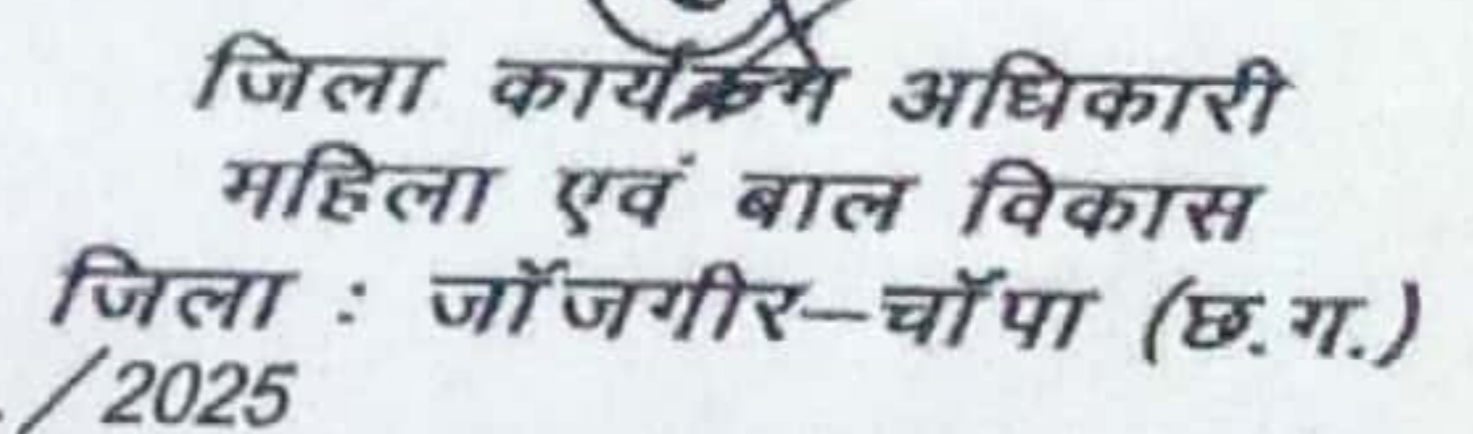 जिला कार्यक्रम अधिकारी
महिला एवं बाल विकास
जिला : जॉजगीर–चॉपा (छ.ग.)
/2025